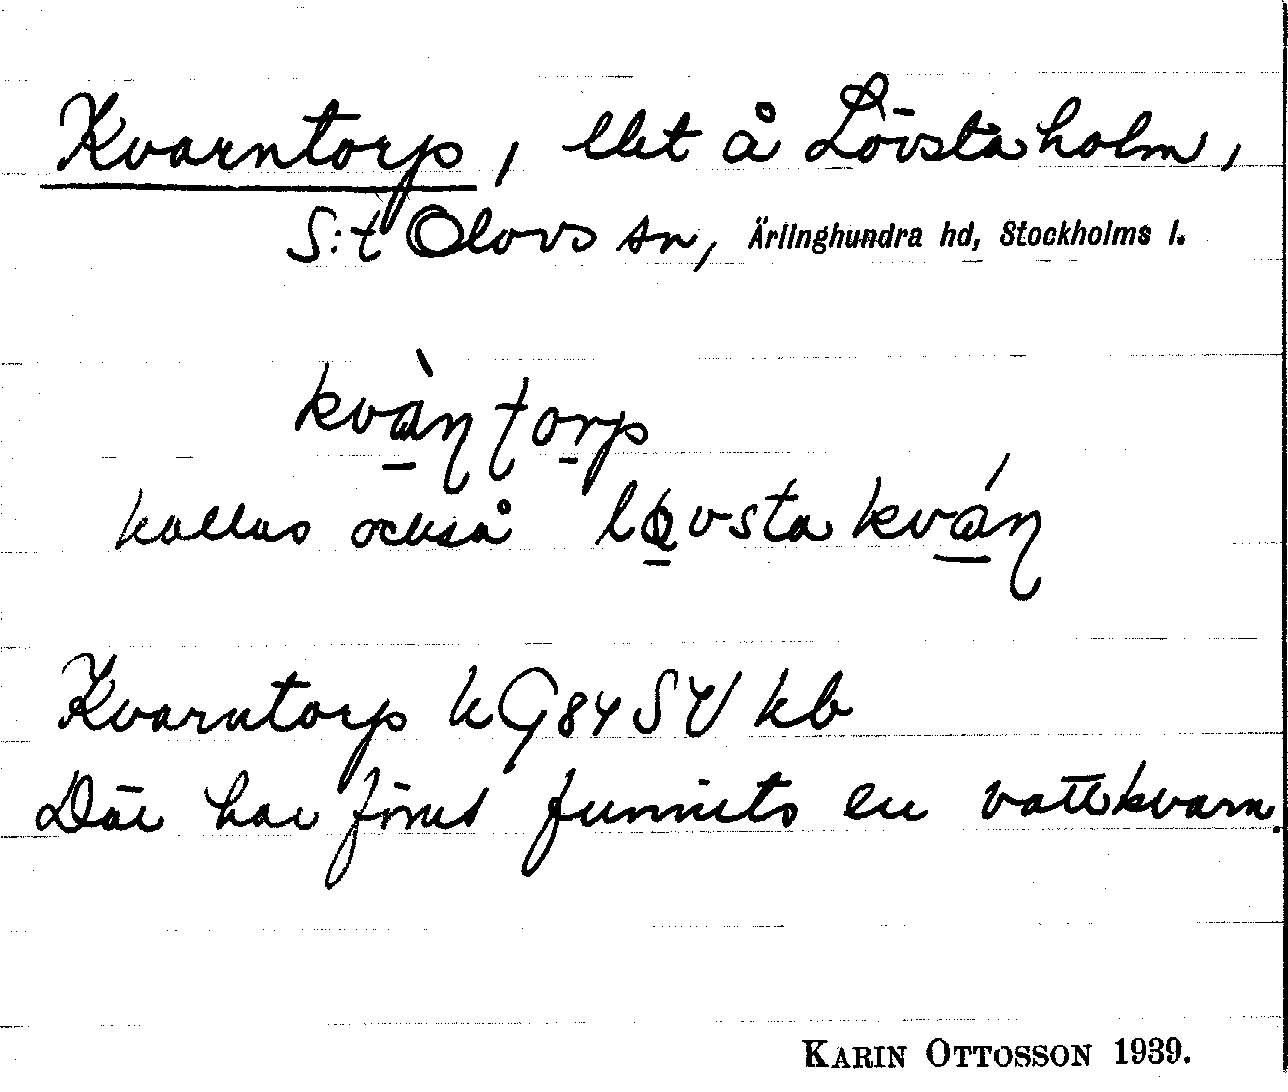 Kvarntorp, llet å Lövstaholm,
S:t Olovs sn, Ärlinghundra hd, Stockholms l.
kvàṇtorp
kallas också lǫvstakváṇ
Kvarntorp kG84SV kb
Där har förut funnits en vattkvarn.
KARIN OTTOSSON 1939.